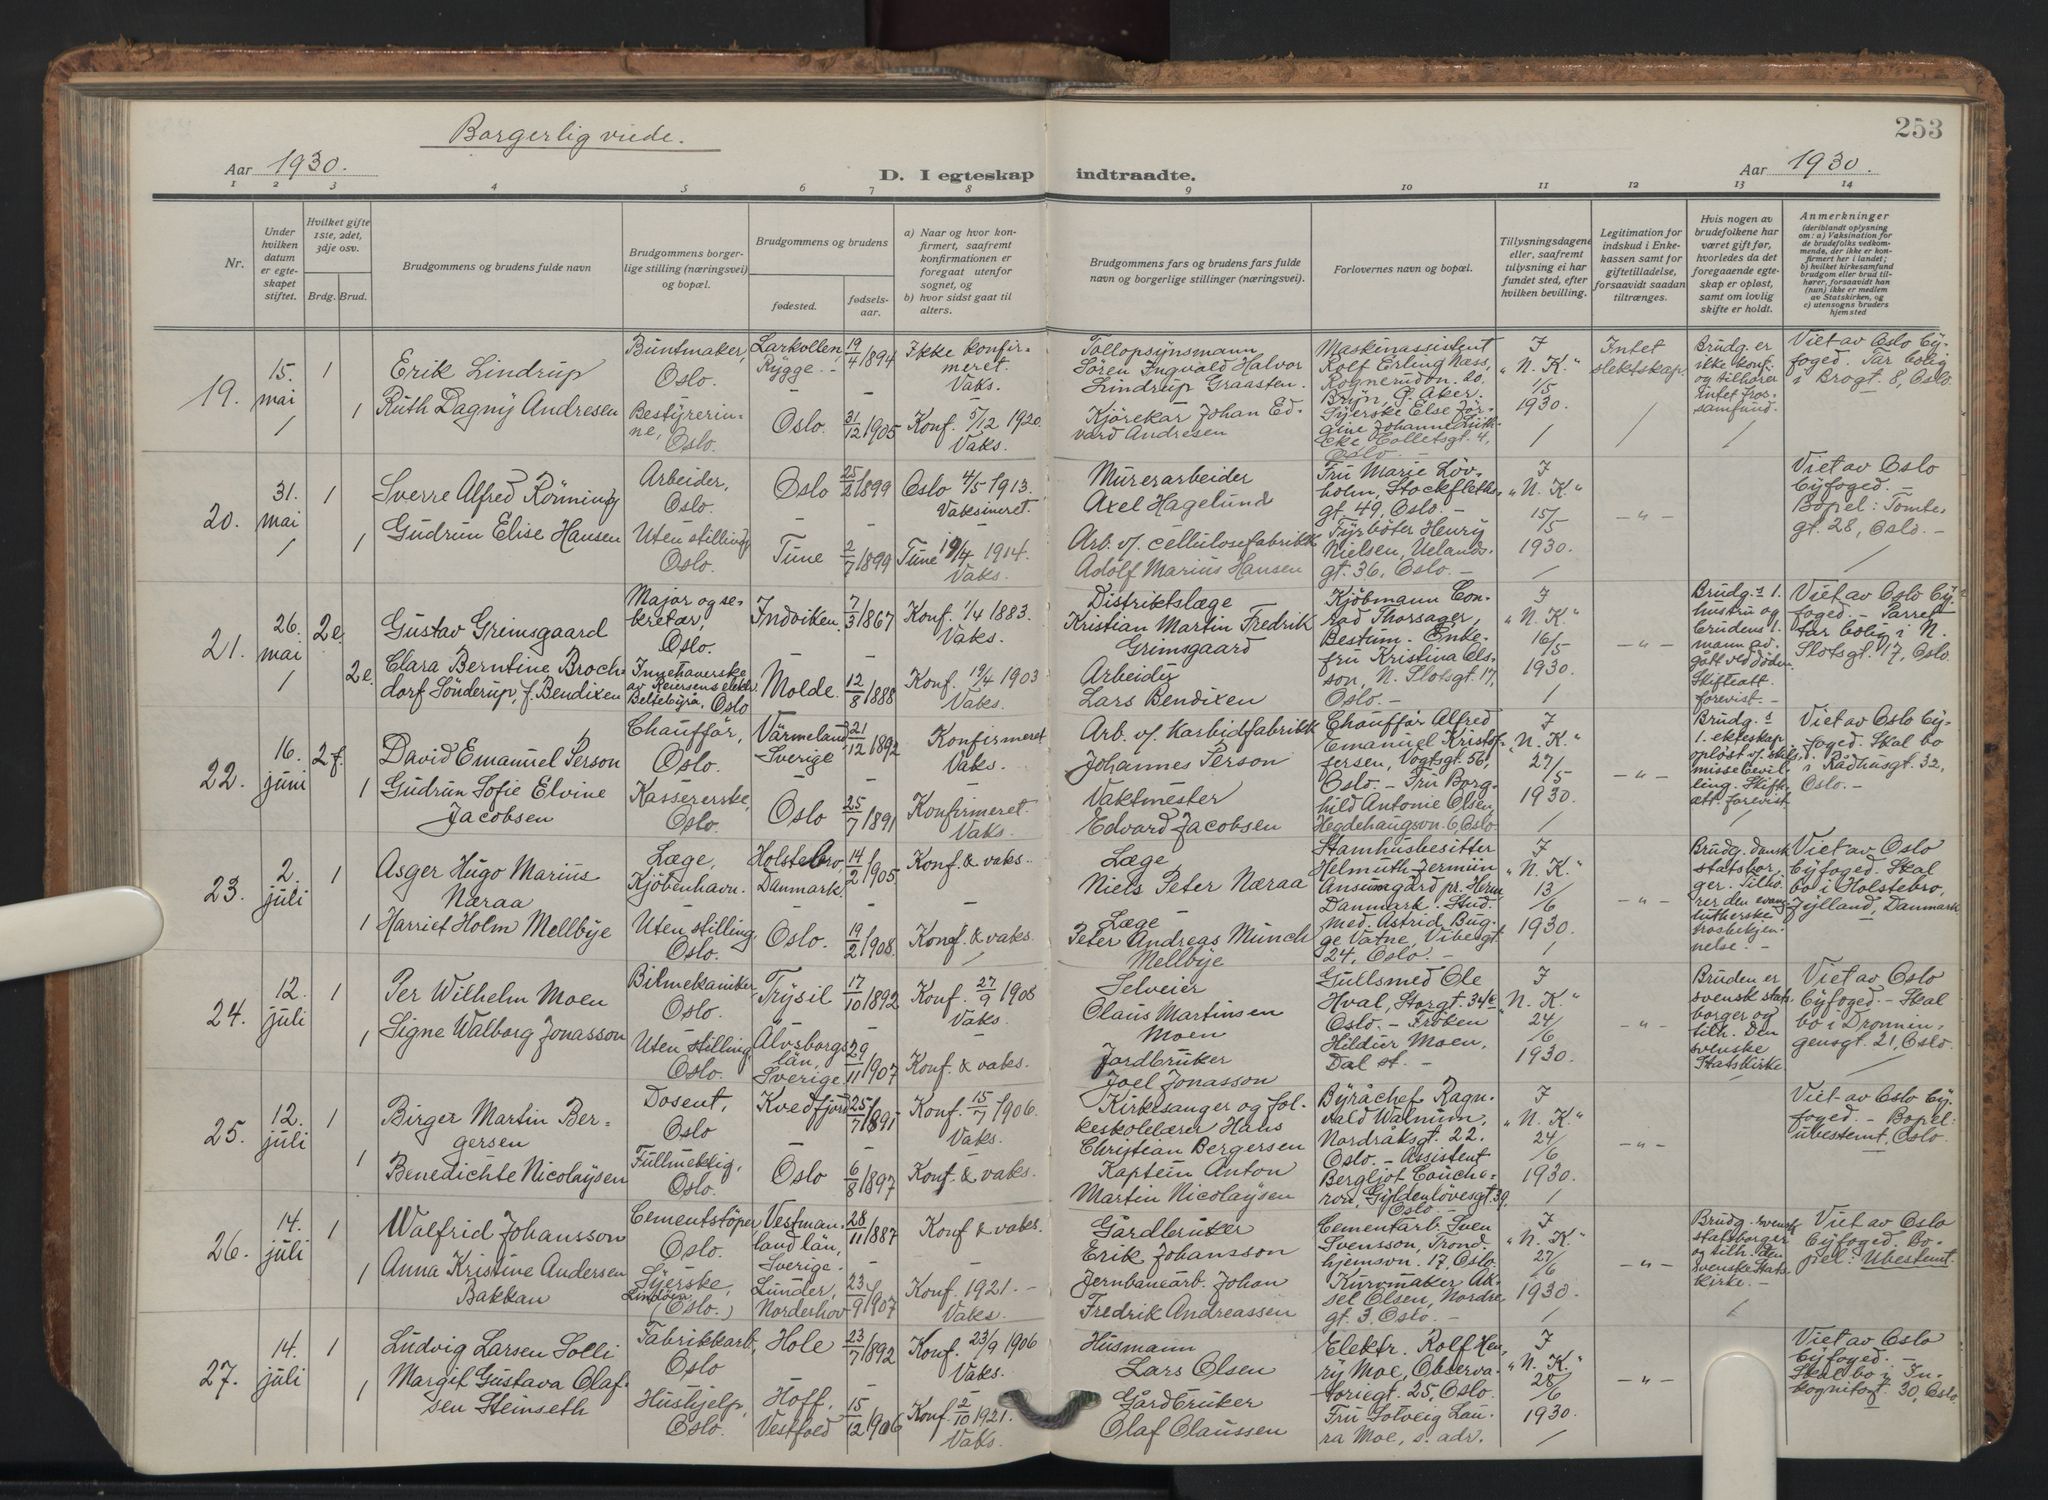 253
Borgerlig viede.
Aar 1930.
D. I egteskap indtraadte.
Aar 1930.
1 2 3 4 5 6 7 8 9 10 11 12 13 14
Nr.
Under hvilken datum er egteskapet stiftet.
Hvilket gifte 1ste, 2det, 3dje osv.
Brdg. Brud.
Brudgommens og brudens fulde navn
Brudgommens borgerlige stilling (næringsvei) og bopæl.
Brudgommens og brudens
fødested.
fødselsaar.
a) Naar og hvor konfirmert, saafremt konfirmationen er foregaat utenfor sognet, og
b) hvor sidst gaat til alters.
Brudgommens fars og brudens fars fulde navn og borgerlige stillinger (næringsvei).
Forlovernes navn og bopæl.
Tillysningsdagene eller, saafremt tillysning ei har fundet sted, efter hvilken bevilling.
Legitimation for indskud i Enkekassen samt for giftetilladelse, forsaavidt saadan tiltrænges.
Hvis nogen av brudefolkene har været gift før, hvorledes da det foregaaende egteskap er opløst, samt om lovlig skifte er holdt.
Anmerkninger (deriblandt oplysning om: a) Vaksination for de brudefolks vedkommende, der ikke er konfirmert her i landet; b) hvilket kirkesamfund brudgom eller brud tilhører, forsaavidt han (hun) ikke er medlem av Statskirken, og c) utensogns bruders hjemsted
19.
15. mai
1
Erik Lindrup
Buntmaker, Oslo.
Larkollen, Rygge.
19/4 1894
Ikke konfirmeret. Vaks.
Tollopsynsmann Sören Ingvald Halvor Lindrup Graasten.
Maskinassistent Rolf Erling Næss, Rognerudvn. 20, Bryn, Ö. Aker.
I "N. K." 1/5 1930.
Intet slektskap.
Brudg. er ikke konf. og tilhører intet trossamfund.
Viet av Oslo Byfoged. Tar bolig i Brogt. 8, Oslo.
1
Ruth Dagny Andresen
Bestyrerinne, Oslo.
Oslo.
31/12 1905
Konf. 5/12 1920. Vaks.
Kjörekar Johan Edvard Andresen
20.
31. mai
1
Sverre Alfred Rönning
Arbeider, Oslo.
Oslo
25/2 1899
Oslo 4/5 1913. Vaksineret.
Murerarbeider Axel Hagelund
Fru Marie Lövholm, Stockflethsgt. 49, Oslo. - Fyrböter Henry Nielsen, Uelandsgt. 36, Oslo. -
I "N. K." 15/5 1930.
- " -
Viet av Oslo byfoged. - Bopel: Tomtegt. 28, Oslo. -
1
Gudrun Elise Hansen
Uten stilling Oslo.
Tune
2/7 1899
Tune 19/4 1914. Vaks.
Arb. v/ cellulosefabrikk Adolf Marius Hansen
21.
26. mai
2e.
Gustav Grimsgaard
Major og sekretær, Oslo.
Indviken.
7/3 1867
Konf. 1/4 1883. Vaks.
Distriktslæge Kristian Martin Fredrik Grimsgaard
Kjöbmann Conrad Thorsager, Bestum. Enkefru Kristina Olsson, N. Slotsgt. 17, Oslo. -
I "N. K." 16/5 1930.
- " -
Brudg.s 1. hustru og brudens 1. mann avgått ved döden. Skifteatt. forevist. -
Viet av Oslo byfoged. - Parret tar bolig i N. Slotsgt. 17, Oslo.
2e.
Clara Berntine Brochdorf Sönderup, f. Bendixen
Innehaverske av Reiersens elektr. Beltebyrå, Oslo
Molde.
12/8 1888
Konf. 19/4 1903 Vaks.
Arbeider Lars Bendixen
22.
16. juni
2f.
David Emanuel Person
Chaufför, Oslo.
Värmeland Sverige
21/12 1892
Konfirmeret Vaks.
Arb. v/ Karbidfabrikk Johannes Person
Chaufför Alfred Emanuel Kristoffersen, Vogtsgt. 56, Oslo. - Fru Borghild Antonie Olsen, Hegdehaugsvn. 6, Oslo
I "N. K." 27/5 1930.
- " -
Brudg.s 1. ekteskap oplöst v/ skilsmissebevilling. Skifteatt. forevist
Viet av Oslo byfoged. Skal bo i Rådhusgt. 32, Oslo. -
1
Gudrun Sofie Elvine Jacobsen
Kassererske, Oslo.
Oslo
25/7 1891
Konfirmeret. Vaks.
Vaktmester Edvard Jacobsen
23.
2. juli
1
Asger Hugo Marius Næraa
Læge, Kjöbenhavn.
Holstebro, Danmark.
14/2 1905
Konf. & vaks.
Læge, Niels Peter Næraa
Stamhusbesitter Helmuth Jermiin Ansumgård pr. Herm Danmark. Stud. med. Astrid Bugge Vatne, Vibesgt. 24, Oslo. -
I "N. K." 13/6 1930.
- " -
Brudg. dansk statsborger. Tilhörer den evang. lutherske trosbekjennelse. -
Viet av Oslo byfoged. Skal bo i Holstebro, Jylland, Danmark
1
Harriet Holm Mellbye
Uten stilling, Oslo.
Oslo.
19/2 1908.
Konf. & vaks.
Læge Peter Andreas Munch Mellbye
24.
12. juli
1
Per Wilhelm Moen
Bilmekaniker Oslo.
Trysil
17/10 1892
Konf. 27/9 1908 Vaks.
Selveier Claus Martinsen Moen
Gullsmed Ole Hval, Storgt. 34 c Oslo. - Fröken Hildur Moen, Dal st. -
I "N. K." 24/6 1930.
- " -
Bruden er svensk statsborger og tilh. den svenske Statskirke
Viet av Oslo byfoged. - Skal bo i Dronningensgt. 21, Oslo.
1
Signe Walborg Jonasson
Uten stilling Oslo.
Älvsborgs län, Sverige.
29/11 1907
Konf. & vaks.
Jordbruker Joel Jonasson
25.
12. juli
1
Birger Martin Bergersen
Dosent, Oslo
Kvedfjord
25/7 1891
Konf. 15/7 1906. Vaks.
Kirkesanger og folkeskolelærer Hans Christian Bergersen
Byråchef Ragnvald Walnum, Nordråksgt. 22. Oslo. - Assistent Bergljot Coucheron, Gyldenlövesgt. 39, Oslo. -
I "N. K." 24/6 1930.
- " -
Viet av Oslo byfoged. - Bopel: ubestemt, Oslo.
1
Benedichte Nicolaysen
Fullmektig, Oslo.
Oslo
6/8 1897
Konf. & vaks.
Kaptein Anton Martin Nicolaysen
26.
14. juli
1
Walfrid Johansson
Cementstöper Oslo.
Vestmanland län, Sverige.
28/11 1887
Konf & vaks.
Gårdbruker Erik Johansson
Cementarb. Sven Svensson, Trondhjemsvn. 17, Oslo. Kurvmaker Aksel Olsen, Nordregt. 3, Oslo. -
I "N. K." 27/6 1930.
- " -
Brudg. svensk statsborger og tilh. den svenske Statskirke. -
Viet av Oslo byfoged. Bopel: Ubestemt.
1
Anna Kristine Andersen Bakkan
Syerske, (Oslo.)
Lunder, Norderhov
23/9 1907
Konf. 1921. - Vaks.
Jernbanearb. Johan Fredrik Andreassen
27.
14. juli
1
Ludvig Larsen Solli
Fabrikkarb. Oslo
Hole
23/7 1892
Konf. 23/9 1906 Vaks.
Husmann Lars Olsen
Elektr. Rolf Henry Moe, Observatoriegt. 25, Oslo. Fru Solveig Laura Moe, s. adr.
I "N. K." 28/6 1930.
- " -
Viet av Oslo byfoged. - Skal bo i Inkognitogt. 30, Oslo.
1
Margit Gustava Olafsen Steinseth
Hushjelp, Oslo.
Hoff, Vestfold
15/12 1906
Konf. 2/10 1921. Vaks.
Gårdbruker Olaf Claussen